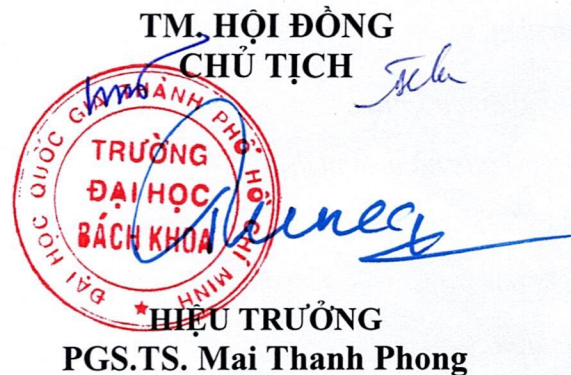 TM. HỘI ĐỒNG
CHỦ TỊCH
ĐẠI HỌC QUỐC GIA THÀNH PHỐ HỒ CHÍ MINH
TRƯỜNG
ĐẠI HỌC
BÁCH KHOA
HIỆU TRƯỞNG
PGS.TS. Mai Thanh Phong